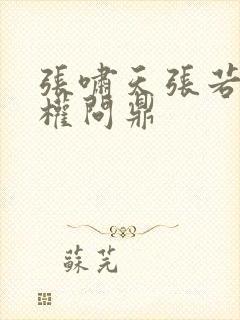 張嘯天張若
權問鼎
蘇芫